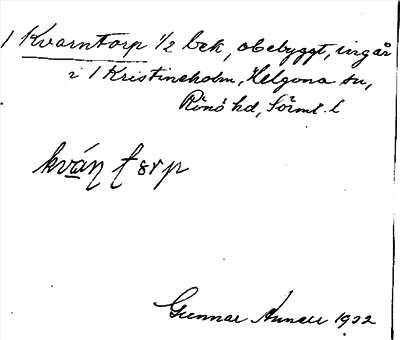 1 Kvarntorp 1/2 bek, obebyggt, ingår
i 1 Kristineholm, Helgona sn,
Rönö hd, Sörml. l
kván tørp
Gunnar 1922